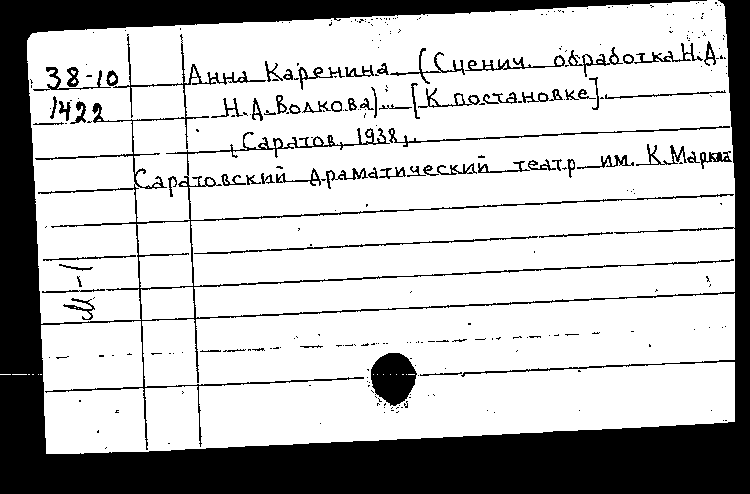 38-10 Анна Каренина. (Сценич. обработка Н.Д.
1422 Н.Д.Волкова). [К постановке].
[Саратов, 1938].
Саратовский драматический театр им. К.Маркса
М-1